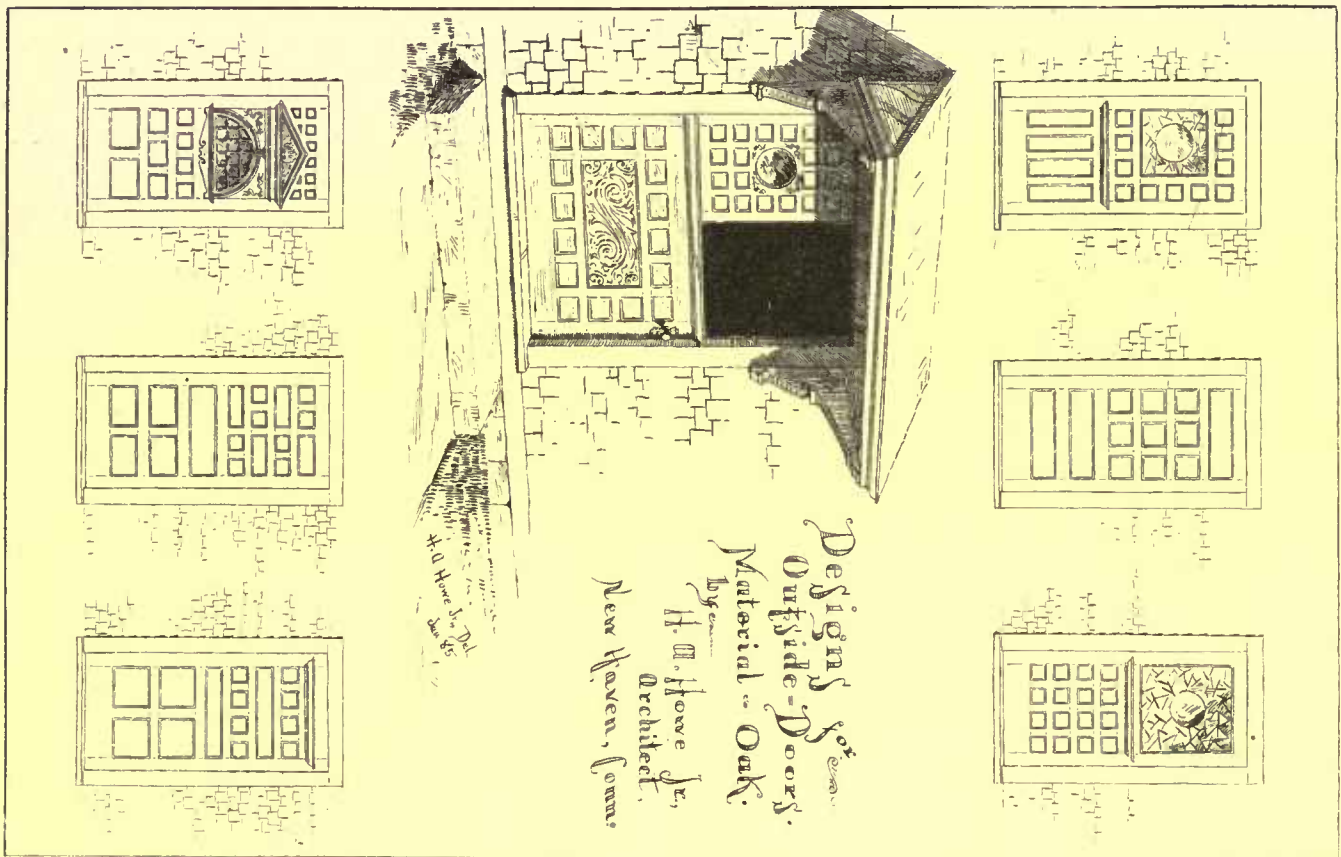 Designs for
Outside-Doors.
Material-Oak.
by
H. A. Howe Jr.,
Architect,
New Haven, Conn:
H. A Howe Jr. Del
Jan 85